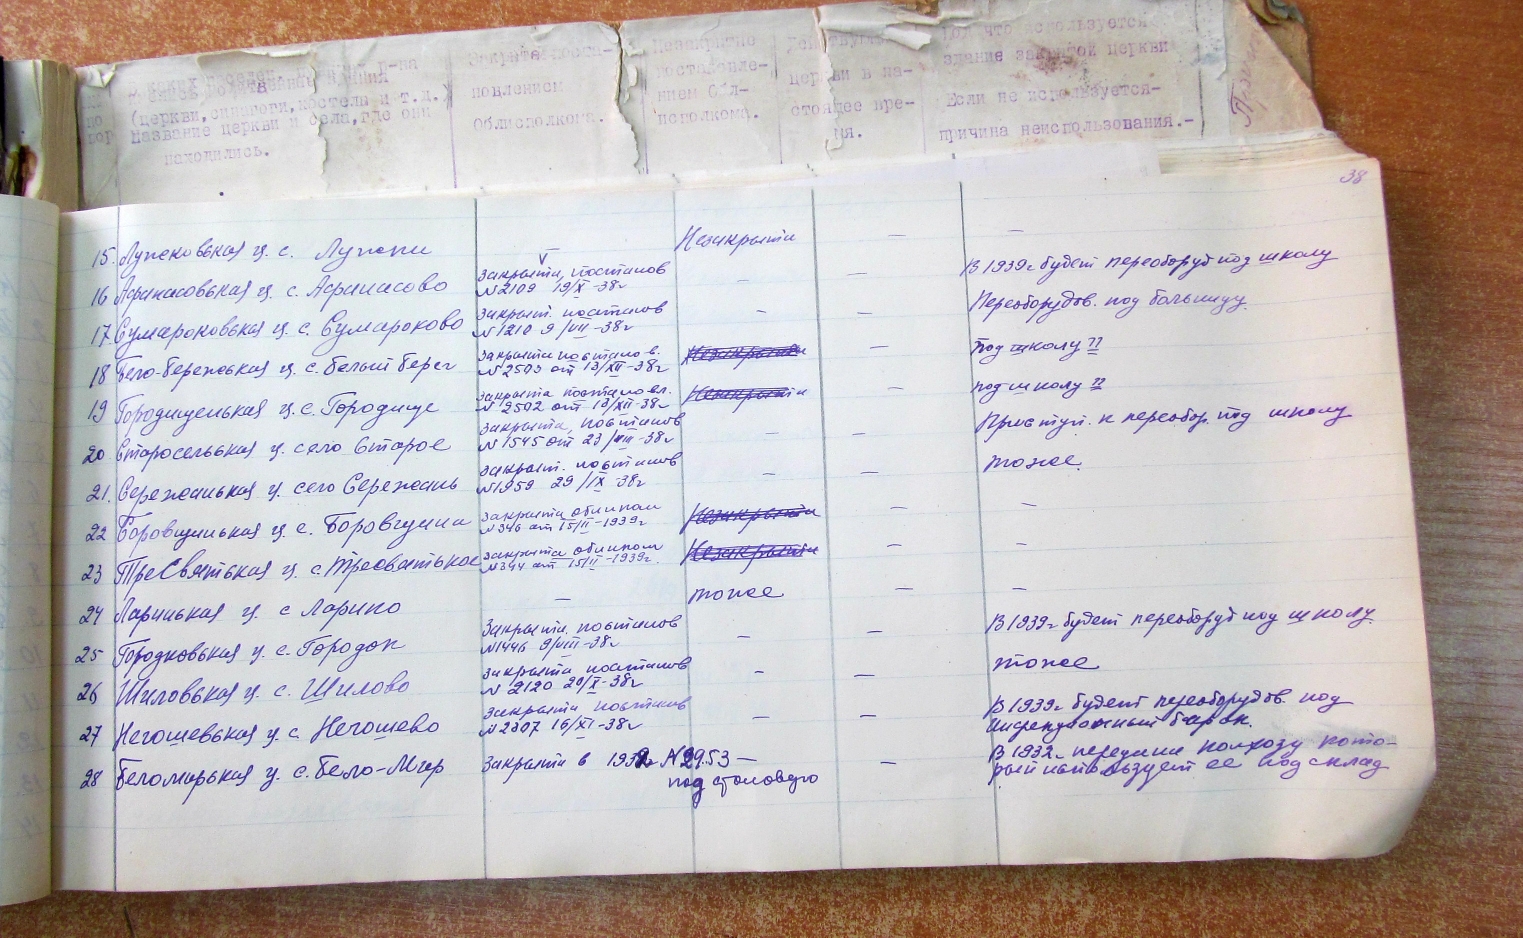 (церкви, синагоги, костелы и т.д.)
Название церкви и села, где они
находились.
Закрыта поста-
новлением
Облисполкома.
Незакрытые
постановле-
нием Обл-
исполкома.
церкви в на-
стоящее вре-
мя.
здание закрытой церкви
Если не используется-
причина неиспользования.-
38
15. Лужковская ц. с. Лужки — Незакрыта — —
16 Афанасовская ц. с. Афанасово Закрыта, постанов
№2109 19/X-38г — — В 1939г будет переоборуд под школу
17. Сумароковская ц. с. Сумароково Закрыт. постанов
№1210 9/VII-38г — — Переоборудов. под больницу
18 Бело-Бережская ц. с. Белый берег Закрыта постанов.
№2503 от 13/XII-38г Незакрыта — Под школу !!
19 Городищенская ц. с. Городище закрыта постановл.
№2502 от 13/XII-38г Незакрыта — под школу !!
20 Старосельская ц. село Старое Закрыта, постанов
№1545 от 23/VIII-38г — — Приступ. к переобор. под школу
21. Сережанская ц. село Сережань Закрыт. постанов
№1959 29/IX-38г — — тоже.
22 Боровщинская ц. с. Боровщина закрыта облисполк
№346 от 15/II-1939г Незакрыта — —
23 ТреСвятская ц. с. Тресвятское закрыта облисполк
№344 от 15/II-1939г. Незакрыта — —
24 Ларинская ц. с Ларино — тоже — —
25 Городковская ц. с. Городок Закрыта постанов
№1446 9/VIII-38г — — В 1939г будет переоборуд под школу.
26 Шиловская ц. с. Шилово Закрыта постанов
№ 2120 20/X-38г — — тоже
27 Негошевская ц. с. Негошево Закрыта постанов
№2307 16/XI-38г — — В 1939г будет переоборудов. под
28 Беломарская ц. с. Бело-Мар Закрыта в 1932г №2953 — — В 1932г. передана колхозу кото-
под столовую рый использует ее под склад